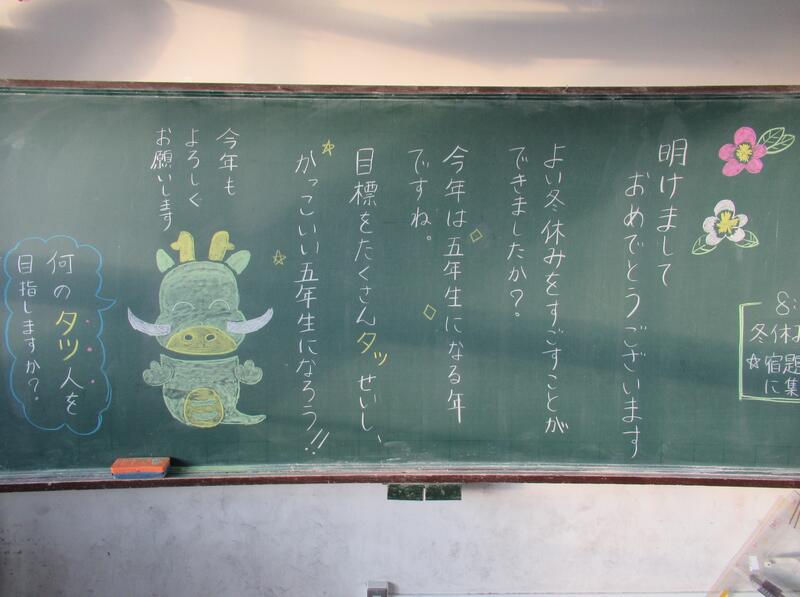 8:
冬休
☆宿題
に集
明けまして
おめでとうございます
よい冬休みをすごすことが
できましたか?
今年は五年生になる年
ですね。
目標をたくさんタッせいし、
かっこいい五年生になろう!!
今年も
よろしく
お願いします
何のタツ人を
目指しますか?